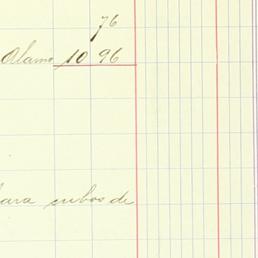 76
Alamo 10 96
para cubos de